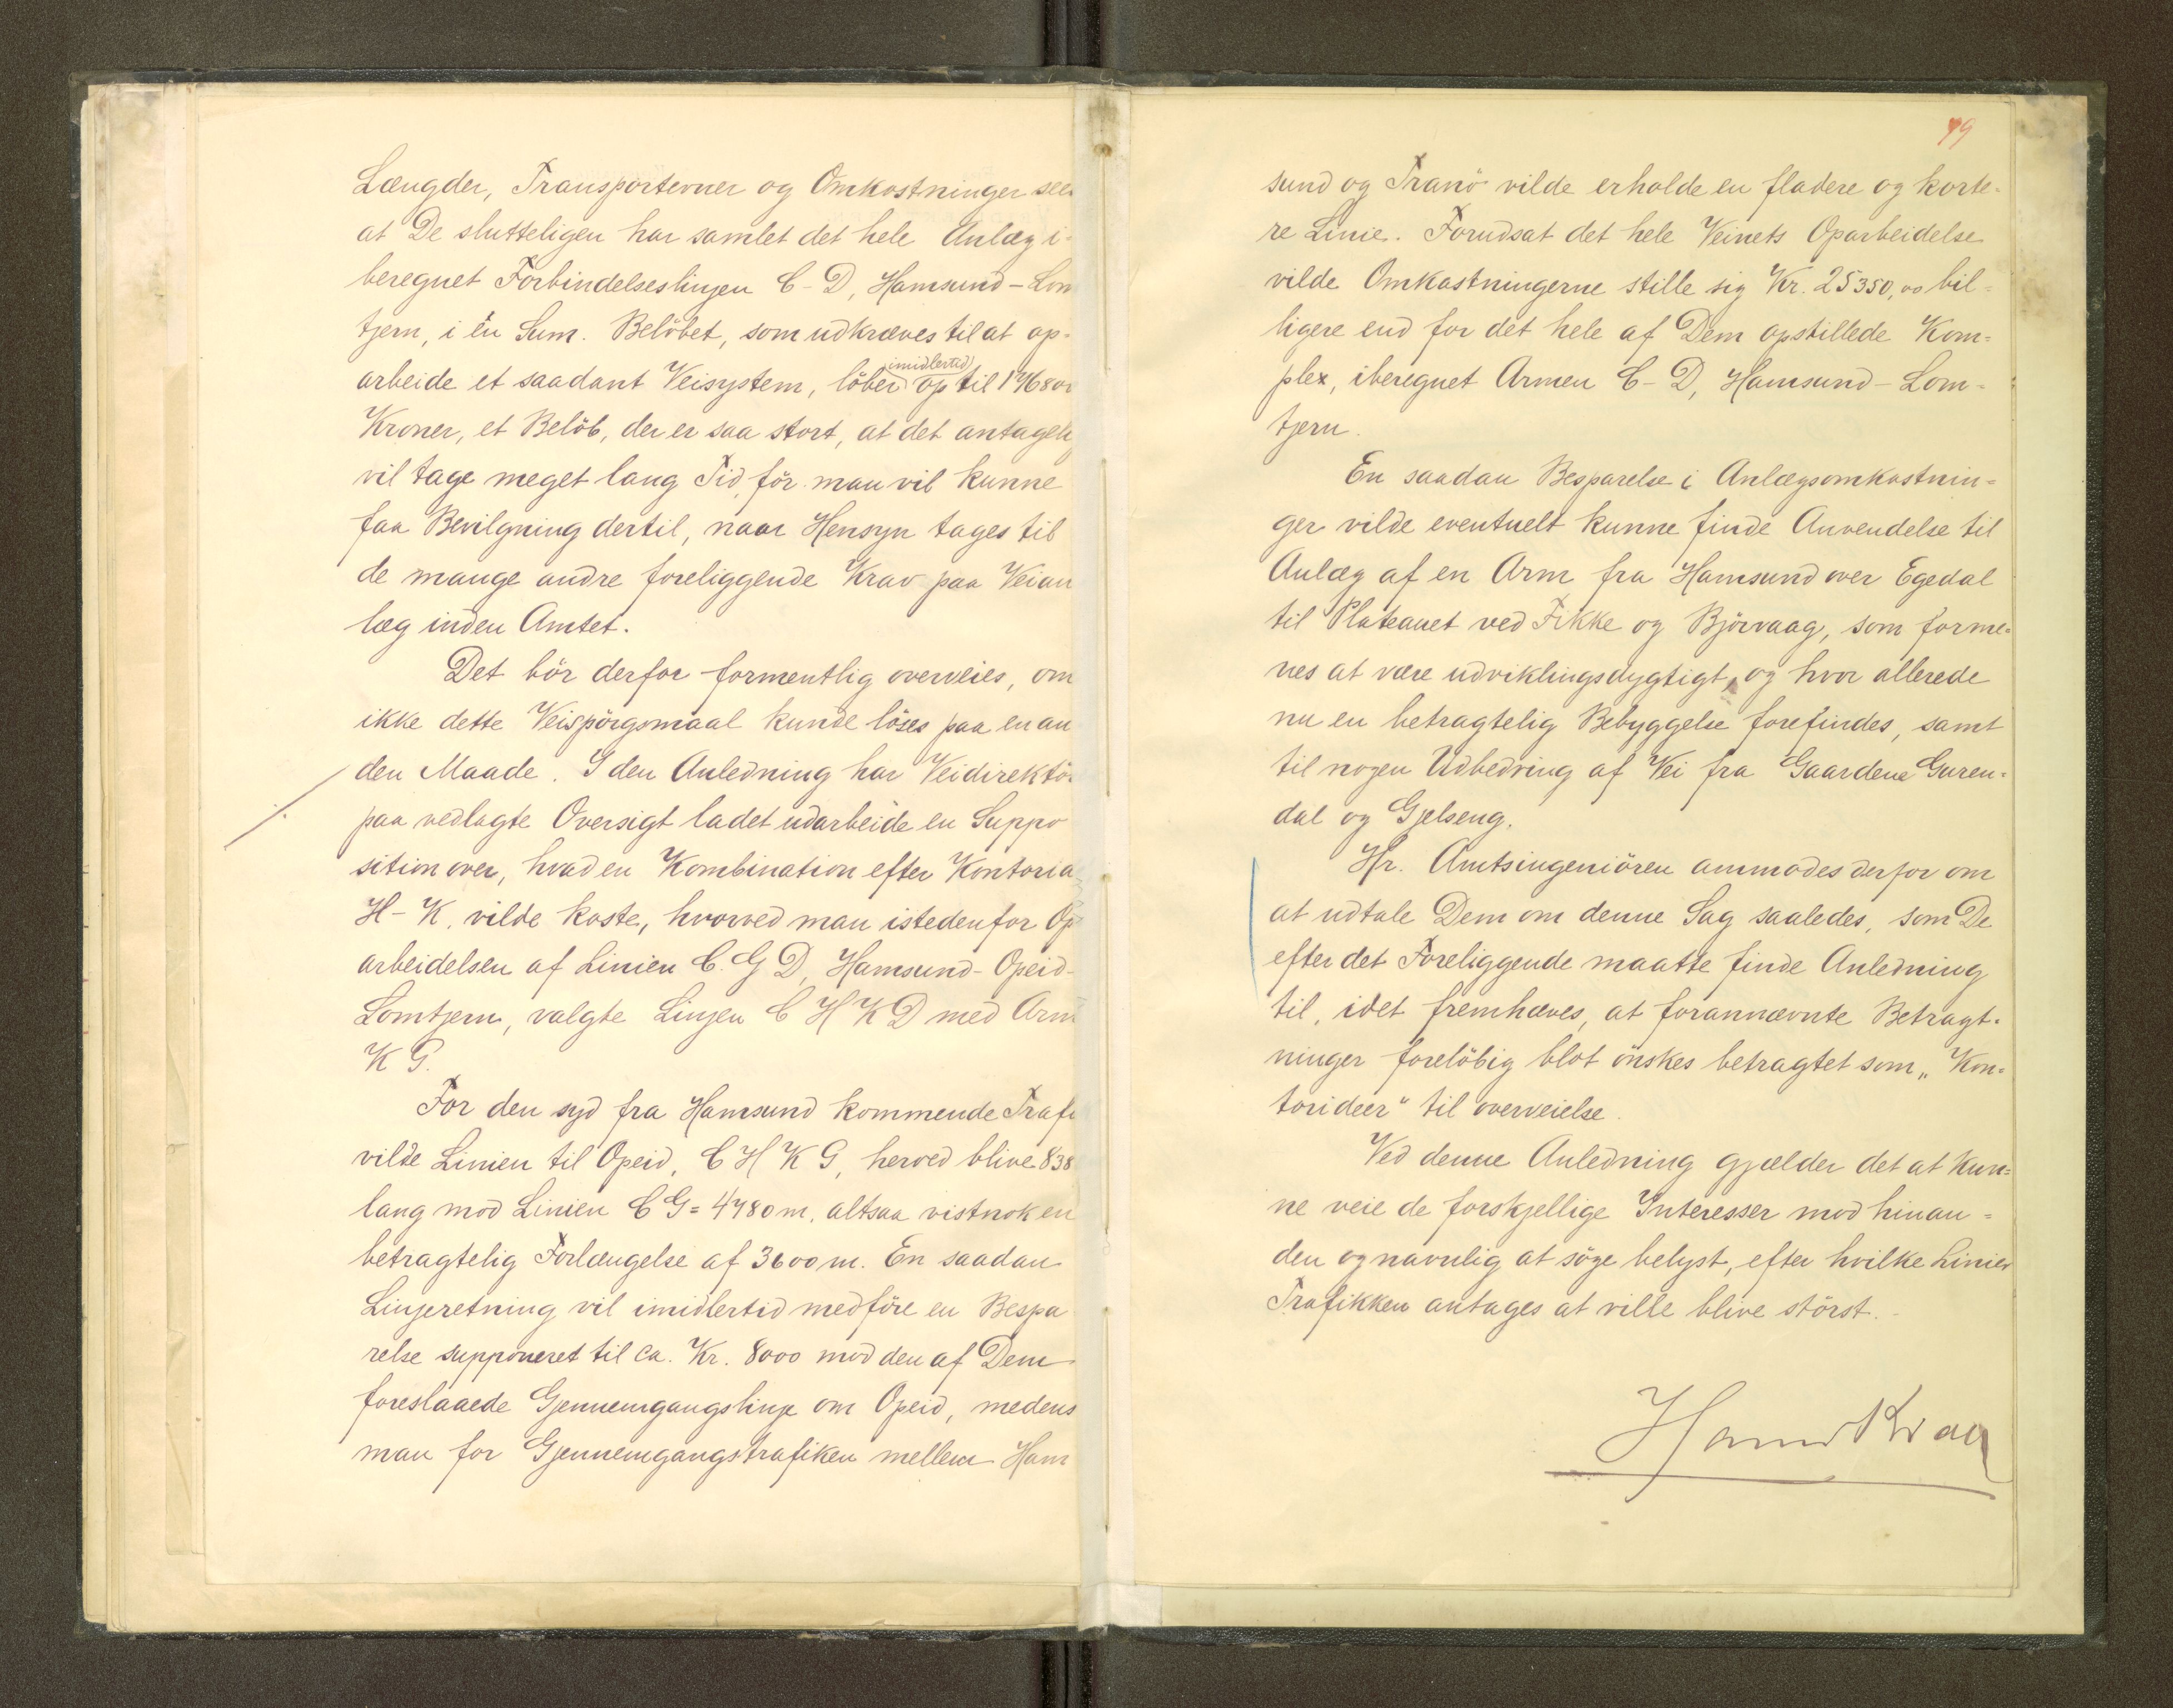 Længder, Transportevner og Omkostninger sees
at De slutteligen har samlet det hele Anlæg i-
beregnet Forbindelseslinjen C-D, Hamsund-Lom
tjern, i én Sum. Belöbet, som udkræves til at op-
imidlertid
arbeide et saadant Veisystem, löber op til 174680
Kroner, et Belöb, der er saa stort, at det antagelig
vil tage meget lang Tid, för man vil kunne
faa Bevilgning dertil, naar Hensyn tages til
de mange andre foreliggende Krav paa Veian
læg inden Amtet.
Det bör derfor formentlig overveies, om
ikke dette Veispörgsmaal kunde löses paa en an
den Maade. I den Anledning har Veidirektör
paa vedlagte Oversigt ladet udarbeide en Suppo
sition over, hvad en Kombination efter Kontoria
H-K. vilde koste, hvorved man istedenfor Op
arbeidelsen af Linien C. G D, Hamsund-Opeid-
Lomtjern, valgte Linjen C H K D med Arm
K G.
For den syd fra Hamsund kommende Trafi
vilde Linien til Opeid, C H K G, herved blive 838
lang mod Linien C G = 4780 m, altsaa vistnok en
betragtelig Forlængelse af 3600 m. En saadan
Linjeretning vil imidlertid medföre en Bespa
relse supponeret til ca. Kr. 8000 mod den af Dem
foreslaaede Gjennemgangslinje om Opeid, medens
man for Gjennemgangstrafiken mellem Ham
79
sund og Tranö vilde erholde en fladere og korte-
re Linie. Forudsat det hele Veinets Oparbeidelse
vilde Omkostningerne stille sig Kr. 25350,00 bil-
ligere end for det hele af Dem opstillede Kom-
plex, iberegnet Armen C-D, Hamsund-Lom-
tjern.
En saadan Besparelse i Anlægsomkostnin-
ger vilde eventuelt kunne finde Anvendelse til
Anlæg af en Arm fra Hamsund over Egedal
til Plateauet ved Fikke og Björvaag, som forme-
nes at være udviklingsdygtigt, og hvor allerede
nu en betragtelig Bebyggelse forefindes, samt
til nogen Udbedring af Vei fra Gaardene Guren-
dal og Gjelseng.
Hr. Amtsingeniören anmodes derfor om
at udtale Dem om denne Sag saaledes, som De
efter det Foreliggende maatte finde Anledning
til, idet fremhæves, at forannævnte Betragt-
ninger foreløbig blot önskes betragtet som "Kon-
torideer" til overveielse.
Ved denne Anledning gjælder det at kun-
ne veie de forskjellige Interesser mod hinan-
den og navnlig at söge belyst, efter hvilke Linier
Trafikken antages at ville blive störst.
Hans Krag